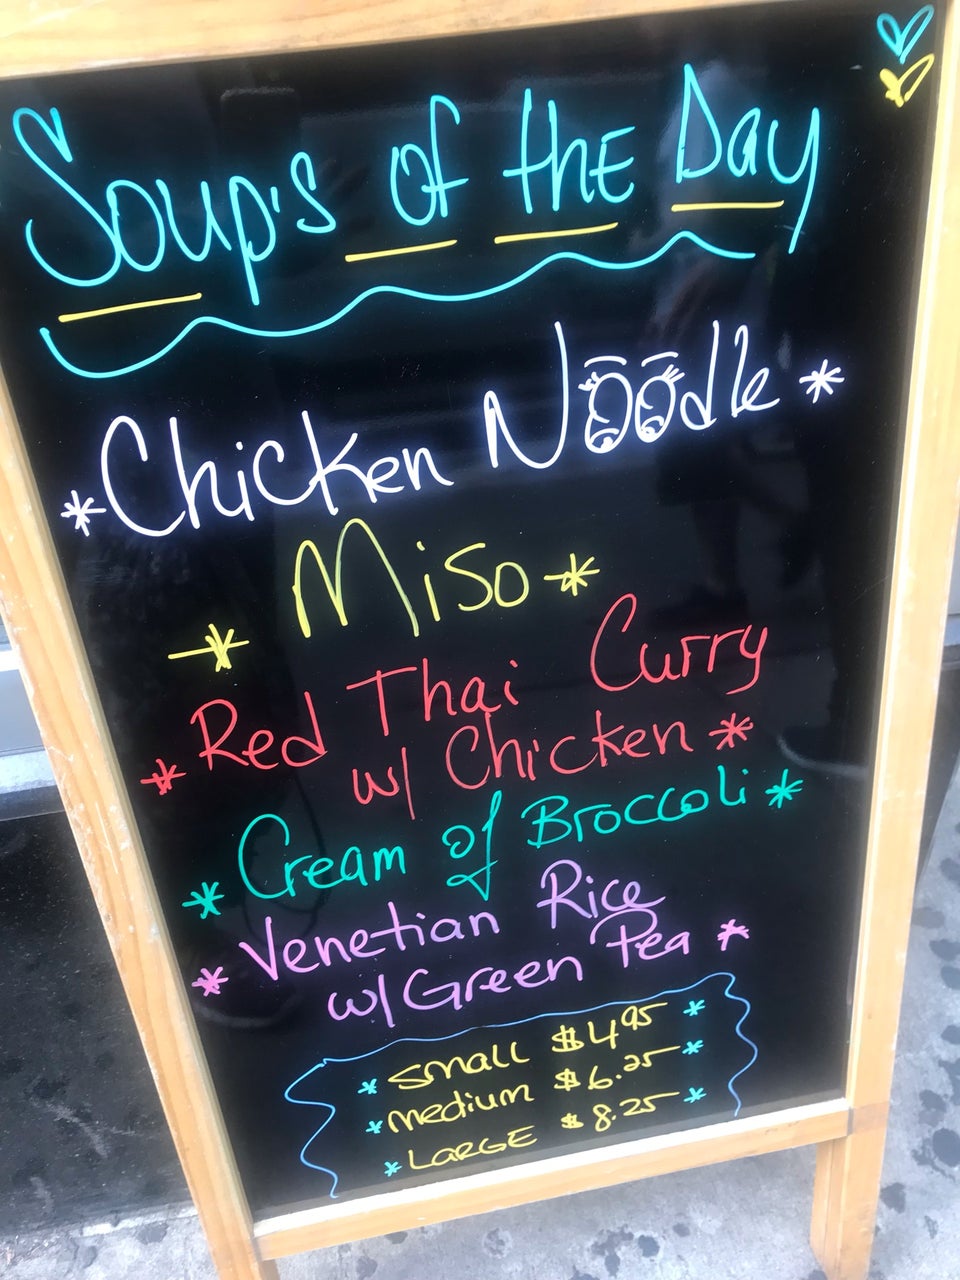 Soup's of the Day
*Chicken Noodle*
*Miso*
*Red Thai Curry
w/ Chicken*
*Cream of Broccoli*
*Venetian Rice
w/ Green Pea*
*Small $4.95*
*Medium $6.25*
*Large $8.25*